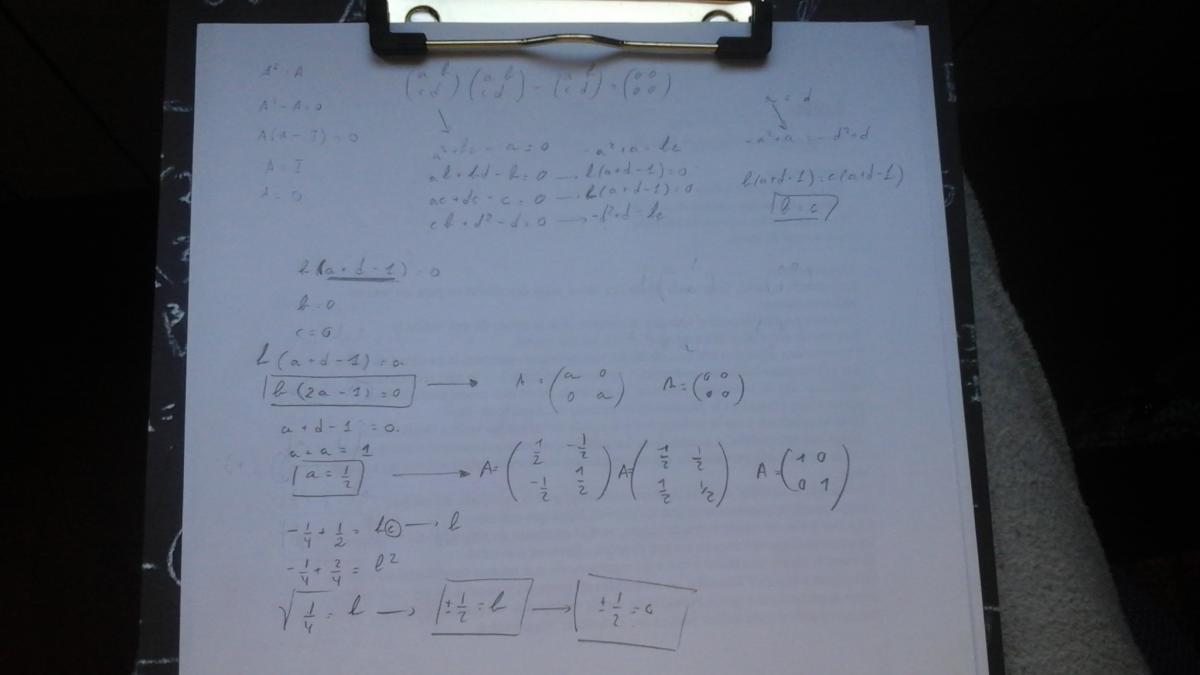 A² = A
A² - A = 0
A(A - I) = 0
A = I
A = 0
(a b / c d) (a b / c d) - (a b / c d) = (0 0 / 0 0)
a² + bc - a = 0   -a² + a = bc
ab + bd - b = 0 → b(a+d-1) = 0
ac + dc - c = 0 → b(a+d-1) = 0
cb + d² - d = 0 → -d² + d = bc
a = d
-a² + a = -d² + d
b(a+d-1) = c(a+d-1)
b = c
b(a+d-1) = 0
b = 0
c = 0
b(a+d-1) = 0
b(2a-1) = 0 → A = (a 0 / 0 a)   A = (0 0 / 0 0)
a + d - 1 = 0.
a + a = 1
a = 1/2 → A = (1/2 -1/2 / -1/2 1/2) A = (1/2 1/2 / 1/2 1/2) A = (1 0 / 0 1)
-1/4 + 1/2 = bc → b
-1/4 + 2/4 = b²
√1/4 = b → ±1/2 = b → ±1/2 = c